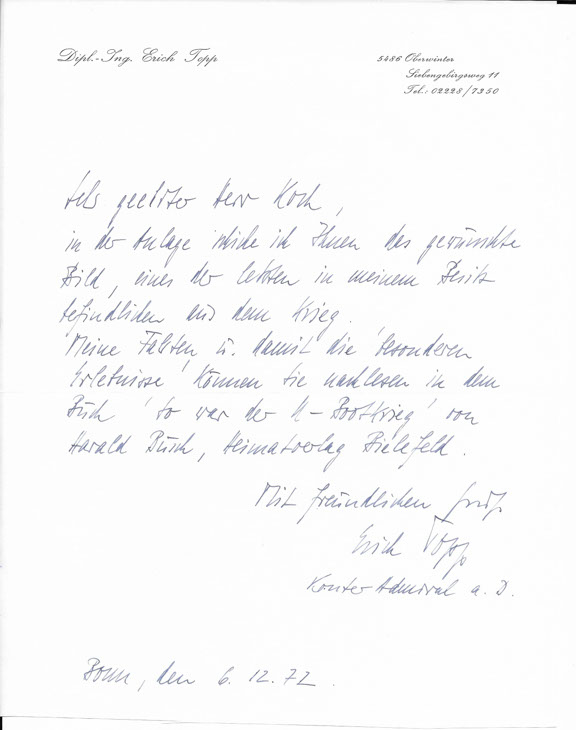 Dipl.-Ing. Erich Topp
5486 Oberwinter
Siebengebirgsweg 11
Tel.: 02228/7350
Sehr geehrter Herr Koch,
in der Anlage schicke ich Ihnen das gewünschte
Bild, eines der letzten in meinem Besitz
befindlichen aus dem Krieg.
Meine Fahrten u. damit die 'besonderen
Erlebnisse' können Sie nachlesen in dem
Buch 'So war der U-Bootkrieg' von
Harald Busch, Heimatverlag Bielefeld.
Mit freundlichem Gruß
Erich Topp
Konter Admiral a. D.
Bonn, den 6.12.72.